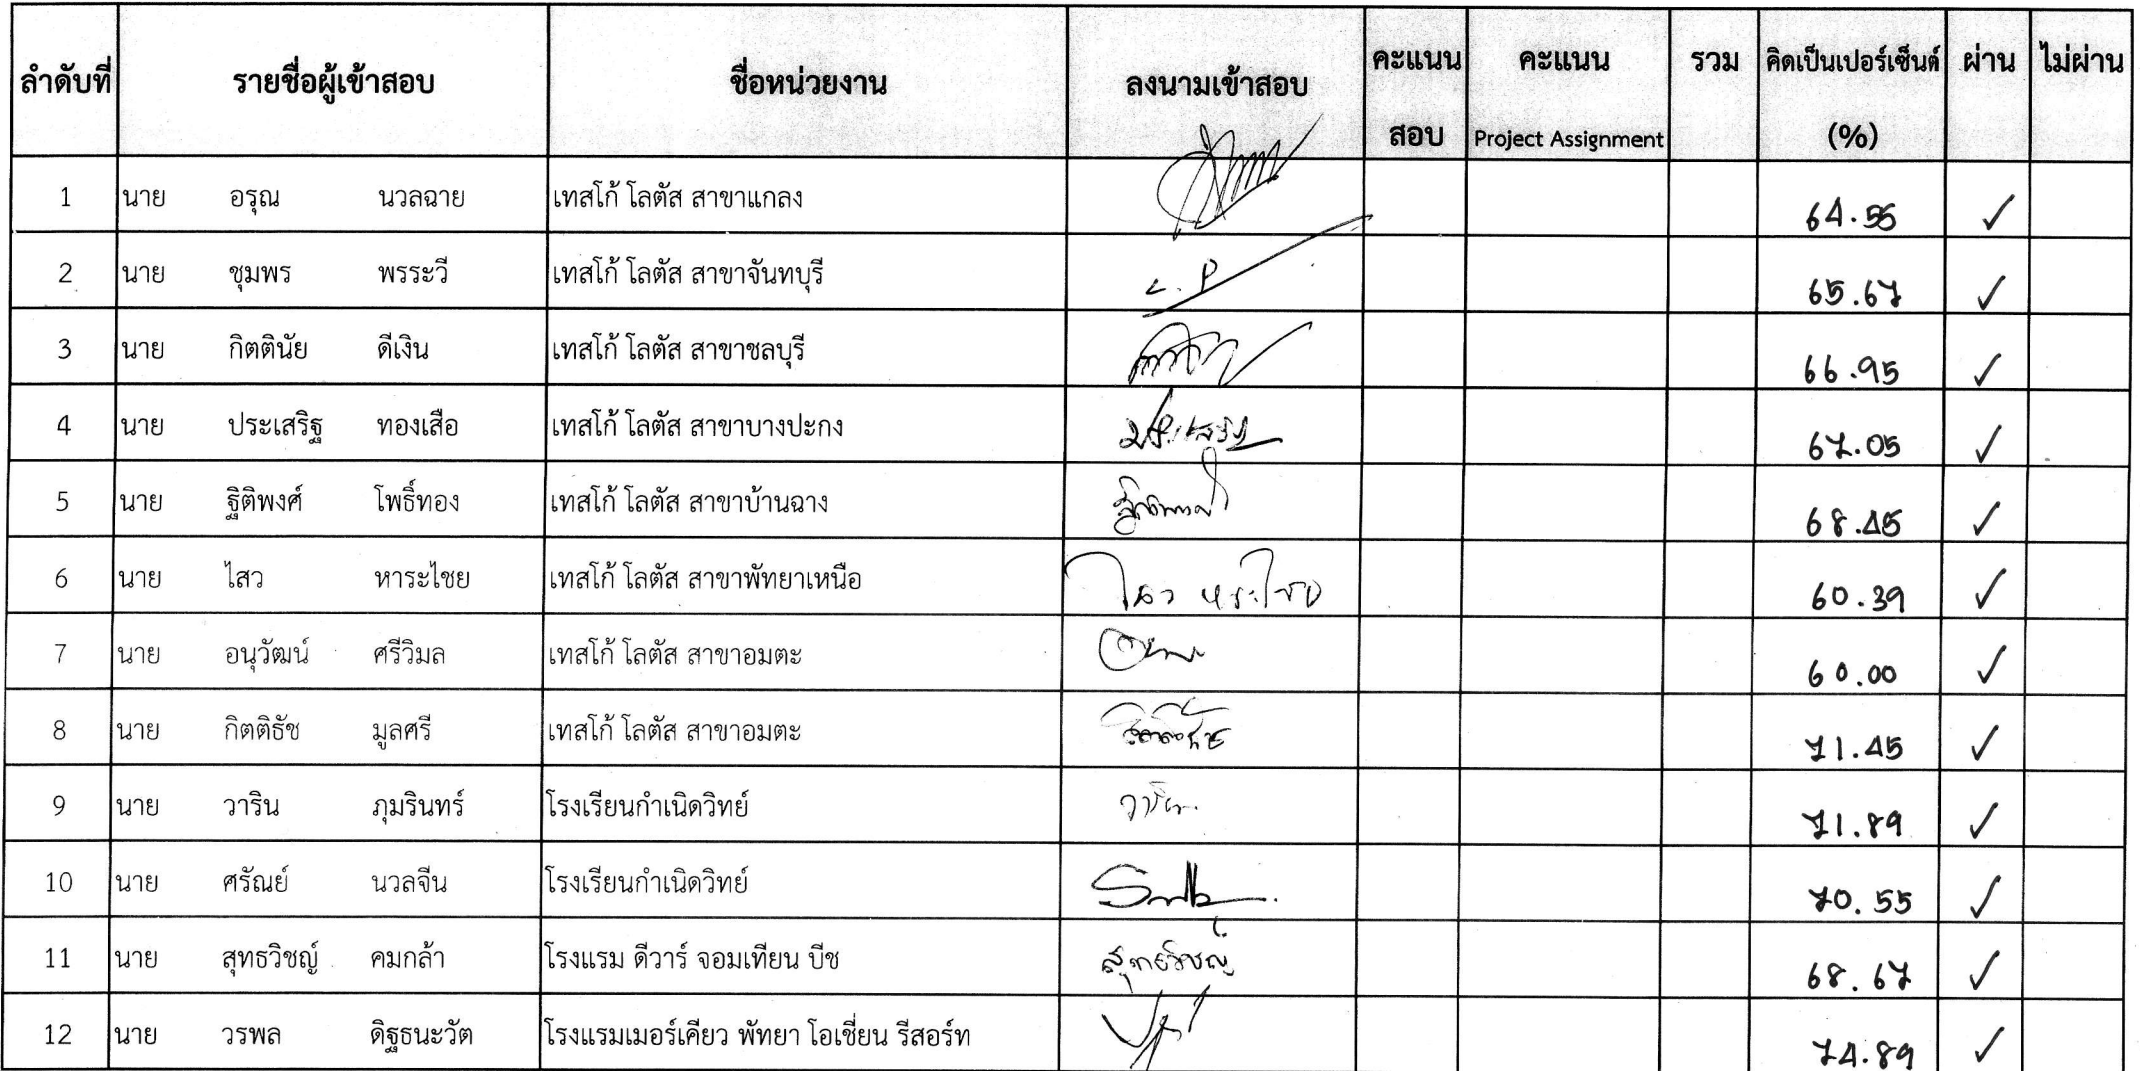 ลำดับที่ รายชื่อผู้เข้าสอบ ชื่อหน่วยงาน ลงนามเข้าสอบ คะแนนสอบ คะแนน Project Assignment รวม คิดเป็นเปอร์เซ็นต์ (%) ผ่าน ไม่ผ่าน
1 นาย อรุณ นวลฉาย เทสโก้ โลตัส สาขาแกลง 64.55 ✓
2 นาย ชุมพร พรระวี เทสโก้ โลตัส สาขาจันทบุรี L.P 65.67 ✓
3 นาย กิตตินัย ดีเงิน เทสโก้ โลตัส สาขาชลบุรี 66.95 ✓
4 นาย ประเสริฐ ทองเสือ เทสโก้ โลตัส สาขาบางปะกง ประเสริฐ 67.05 ✓
5 นาย ฐิติพงศ์ โพธิ์ทอง เทสโก้ โลตัส สาขาบ้านฉาง ฐิติพงศ์ 68.45 ✓
6 นาย ไสว หาระไชย เทสโก้ โลตัส สาขาพัทยาเหนือ ไสว หาระไชย 60.39 ✓
7 นาย อนุวัฒน์ ศรีวิมล เทสโก้ โลตัส สาขาอมตะ 60.00 ✓
8 นาย กิตติธัช มูลศรี เทสโก้ โลตัส สาขาอมตะ กิตติธัช 71.45 ✓
9 นาย วาริน ภุมรินทร์ โรงเรียนกำเนิดวิทย์ วาริน 71.89 ✓
10 นาย ศรัณย์ นวลจีน โรงเรียนกำเนิดวิทย์ 70.55 ✓
11 นาย สุทธวิชญ์ คมกล้า โรงแรม ดีวาร์ จอมเทียน บีช สุทธวิชญ์ 68.67 ✓
12 นาย วรพล ดิฐธนะวัต โรงแรมเมอร์เคียว พัทยา โอเชี่ยน รีสอร์ท 74.89 ✓